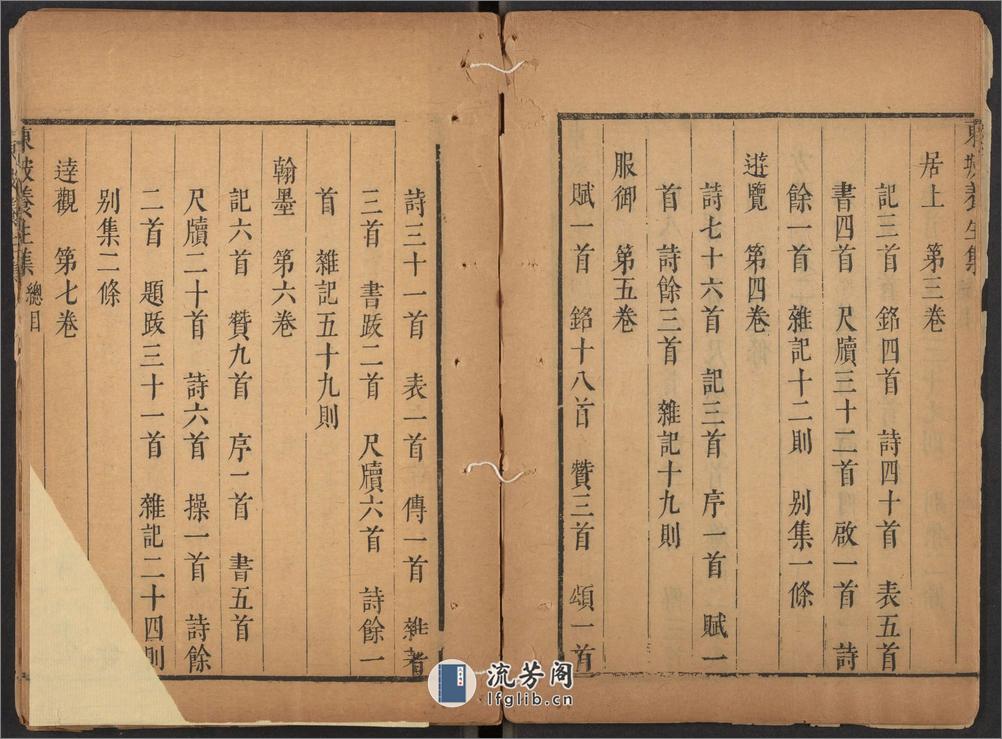 東坡養生集
居上　第三卷
記三首　銘四首　詩四十首　表五首
書四首　尺牘三十二首　啟一首　詩
餘一首　雜記十二則　别集一條
遊覽　第四卷
詩七十六首　記三首　序一首　賦一
首　詩餘三首　雜記十九則
服御　第五卷
賦一首　銘十八首　贊三首　頌一首
詩三十一首　表一首　傳一首　雜著
三首　書䟦二首　尺牘六首　詩餘一
首　雜記五十九則
翰墨　第六卷
記六首　贊九首　序一首　書五首
尺牘二十首　詩六首　操一首　詩餘
二首　題䟦三十一首　雜記二十四則
别集二條
達觀　第七卷
東坡養生集　總目
流芳阁
lfglib.cn